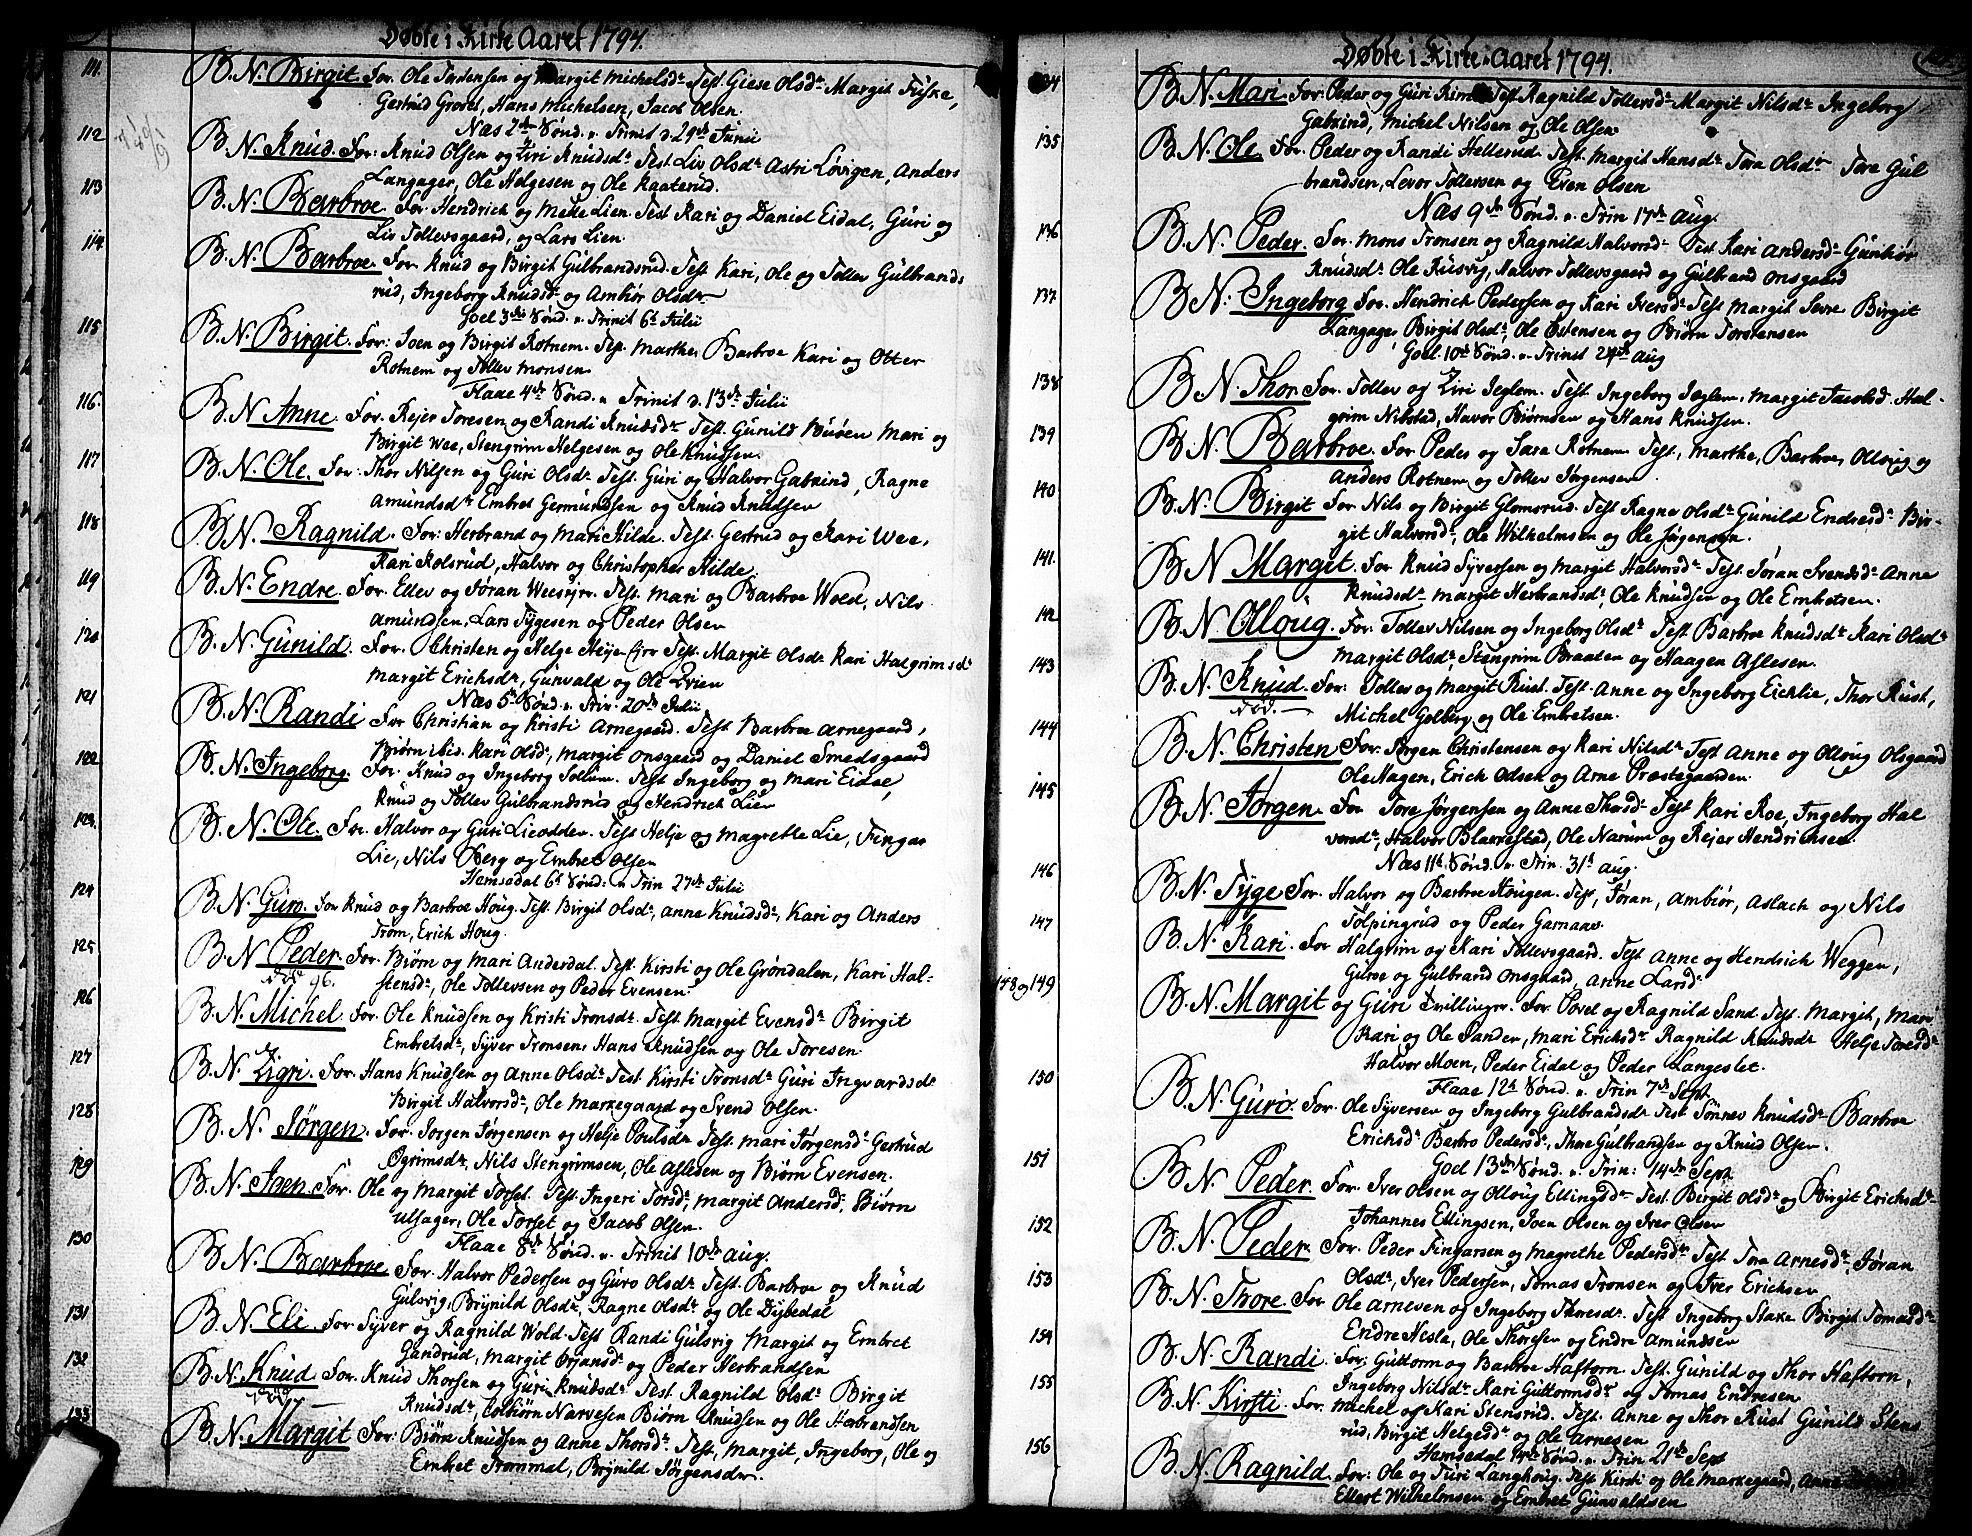 Døbte i Kirke Aaret 1794.
111. B. N. Birgit For. Ole Tordensen og Margit Michelsdr. Test. Giese Olsdr. Margit Fiske,
Gertrud Grovet, Hans Michelsen, Jacob Olsen.
Næs 2den Sønd. v. Trinit d. 29de Junii
112 B. N. Knud. For: Knud Olsen og Ziri Knudsdr. Test. Liv Olsdr. Astri Løvigen, Anders
Langager, Ole Helgesen og Ole Kaaterud.
113 B. N. Barbroe For. Hendrich og Mette Lien. Test. Kari og Daniel Eidal, Guri og
Liv Tollevsgaard, og Lars Lien.
114 B. N. Barbroe For. Knud og Birgit Gulbrandsrud. Test. Kari, Ole og Tollev Gulbrands
rud, Ingeborg Knudsdr. og Ambiør Olsdr.
Goel 3die Sønd. v. Trinit 6te Julii
115 B. N. Birgit. For: Joen og Birgit Rotnem. Test. Marthe, Barbroe Kari og Otter
Rotnem og Tollev Monsen
Flaae 4de Sønd. v. Trinit d. 13de Julii
116. B. N Anne For. Rejer Toresen og Randi Knudsdr. Test. Gunild Buøen Mari og
Birgit Wee, Stengrim Helgesen og Ole Knudsen.
117 B. N. Ole. For: Thor Nilsen og Guri Olsdr. Test. Guri og Halvor Gabkind, Ragne
Amundsdr. Embret Germundsen og Knud Knudsen
118 B. N. Ragnild. For: Herbrand og Mari Hilde. Test. Gertrud og Kari Wee,
Kari Rolsrud, Halvor og Christopher Hilde.
119 B. N. Endre For. Ellev og Jøran Weesejer. Test. Mari og Barbroe Wold, Nils
Amundsen, Lars Tygesen og Peder Olsen
120 B. N. Gunild For. Christen og Helge Test. Margit Olsdr. Kari Halgrimsdr.
Margit Erichsdr, Gunvald og Ole Zvien
Næs 5te Sønd. v. Trin. 20de Julii
121 B. N. Randi For Christian og Kristi Arnegaard. Test. Barbroe Arnegaard,
Biørn ibid. Kari Olsdr, Margit Onsgaard og Daniel Smedsgaard
122 B. N. Ingeborg. For. Knud og Ingeborg Tollum. Test Ingeborg og Mari Eidal,
Knud og Tollev Gulbrandsrud og Hendrich Lien
123. B. N. Ole. For. Halvor og Guri Lieodden. Test Helje og Magrethe Lie, Fingar
Lie, Nils Berg og Embret Olsen
Hemsedal 6te Sønd: v Trin 27de Julii
124 B. N. Guro. For Knud og Barbroe Houg. Test. Birgit Olsdr, Anne Knudsdr, Kari og Anders
Trøm, Erich Houg.
125 B. N Peder For. Biørn og Mari Anderdal. Test. Kirsti og Ole Grøndalen, Kari Hal-
død 96. stensdr, Ole Tollevsen og Peder Evensen
126 B. N. Michel For. Ole Knudsen og Kristi Tronsdr. Test. Margit Evensdr Birgit
Embretsdr, Syver Tronsen, Hans Knudsen og Ole Toresen
127 B. N. Zigri. For. Hans Knudsen og Anne Olsdr Test Kirsti Tronsdr Guri Ingvardsdr
Birgit Halvorsdr, Ole Markegaard og Svend Olsen.
128 B. N. Jørgen. For. Jorgen Jørgensen og Helje Poulsdr Test. Mari Jørgensdr Gertrud
Øgrimsdr, Nils Stengrimsen, Ole Aslesen og Biørn Evensen.
129 B. N. Joen. For. Ole og Margit Torset. Test. Ingeri Torsdr, Margit Andersdr, Biørn
Ulsager, Ole Torset og Jacob Olsen.
Flaae 8de Sønd. v. Trinit 10de Aug.
130 B. N. Barbroe For. Halvor Pedersen og Guro Olsdr. Test. Barbroe og Knud
Gulsvig, Brynild Olsdr, Ragne Olsdr og Ole Dybedal
131 B. N Eli For Syver og Ragnild Wold. Test Randi Gulsvig Margit og Embret
Gandrud, Margit Ørjansdr og Peder Herbrandsen
132 B. N. Knud For. Knud Thorsen og Guri Knudsdr. Test. Ragnild Olsdr. Birgit
død Knudsdr, Colbiørn Narvesen Biørn Knudsen og Ole Herbrandsen
133 B. N. Margit For: Biørn Knudsen og Anne Thorsdr. Test, Margit, Ingeborg, Ole og
Embret Trommal, Brynild Jørgensdr.
Døbte i Kirke-Aaret 1794.
134 B. N. Mari For: Peder og Guri Rime Test Ragnild Tollevsdr Margit Nilsdr. Ingeborg
Gabkind, Michel Nilsen og Ole Olsen
135 B. N. Ole For. Peder og Randi Hellerud. Test. Margit Hansdr. Tora Olsdr Tore Gul
brandsen, Levor Tollevsen og Even Olsen
Næs 9de Sønd. v. Trin 17de Aug.
136 B. N. Peder. For. Mons Tronsen og Ragnild Halvorsdr Test. Kari Andersdr Gunhør
Knudsdr. Ole Rusvig, Halvor Tollevsgaard og Gulbrand Onsgaard
137 B. N. Ingeborg For. Hendrich Pedersen og Kari Iversdr Test Margit Sevre Birgit
Langage, Birgit Olsdr, Ole Estensen og Biørn Torstensen
Goel 10de Sønd. v. Trinit 24de Aug
138 B N. Thor For. Tollev og Ziri Jeglem. Test. Ingeborg Jeglem. Margit Jacobsd. Hal-
grim Nibstad, Havor Biørnsen og Hans Knudsen.
139 B. N. Barbroe. For Peder og Sara Rotnem Test, Marthe, Barbroe, Olloug og
Anders Rotnem og Tollev Jørgensen
140 B. N. Birgit For Nils og Birgit Glomsrud. Test Ragne Olsdr Gunild Endresdr Bir-
git Halvorsdr, Ole Wilhelmsen og Ole Jørgensen.
141. B. N Margit. For Knud Syversen og Margit Halvorsdr Test Jøran Svendsdr. Anne
Knudsdr. Margit Herbrandsdr, Ole Knudsen og Ole Embretsen.
142 B. N Olloug For. Tollev Nilsen og Ingeborg Olsdr Test Barbroe Knudsdr Kari Olsdr
Margit Olsdr, Stengrim Braaten og Haagen Aslesen.
143 B. N. Knud. For: Tollev og Margit Rust. Test. Anne og Ingeborg Eichlie, Thor Rust,
død. Michel Golberg og Ole Embretsen.
144 B. N. Christen For. Jørgen Christensen og Kari Nilsdr. Test Anne og Olloug Olsgaard
Ole Hagen, Erich Olsen og Arne Præstegaarden.
145 B. N. Jørgen. For Tore Jørgensen og Anne Thorsdr. Test Kari Roe, Ingeborg Hal
vorsdr, Halvor Blakkestad, Ole Narum og Rejer Hendrichsen
Næs 11te Sønd. v. Trin. 31te Aug.
146 B. N. Tyge For. Halvor og Barbroe Hougen. Test, Jøran, Ambiør, Aslach og Nils
Tolpingrud og Peder Garnaas
147 B. N. Kari. For Halgrim og Kari Tollevsgaard. Test Anne og Hendrich Weggen,
Gurie og Gulbrand Onsgaard, Anne Larsdr
148 og 149 B. N. Margit og Guri Tvillinger. For. Povel og Ragnild Sand. Test. Margit, Mari
Kari og Ole Sanden, Mari Erichsdr. Ragnild Knudsdr Helje Toresdr
Halvor Moen, Peder Eidal og Peder Langeslet.
Flaae 12te Sønd. v Trin 7de Sept.
150 B. N. Guro. For. Ole Syversen og Ingeborg Gulbrandsdr Test Sønnev Knudsdr Barbroe
Erichsdr Barbro Pedersdr, Thore Gulbrandsen og Knud Olsen.
Goel 13de Sønd. v. Trin: 14de Sept.
151 B. N. Peder. For. Iver Olsen og Olloug Ellingsdr Test. Birgit Olsdr og Birgit Erichsdr
Johannes Ellingsen, Joen Olsen og Iver Olsen
152 B. N. Peder. For. Peder Fingarsen og Magrethe Pedersdr. Test Tora Arnesdr, Jøran
Olsdr, Iver Pedersen, Tomas Tronsen og Iver Erichsen
153 B. N. Thore. For Ole Arnesen og Ingeborg Thoresdr. Test Ingeborg Stake Birgit Tomasdr
Endre Nesla, Ole Thoresen og Endre Amundsen
154 B. N. Randi. For: Guttorm og Barbroe Haftorn. Test. Gunild og Thor Haftorn,
Ingeborg Nilsdr Kari Guttormsdr og Tomas Endresen
155 B. N. Kirsti For. Michel og Kari Stensrud. Test. Anne og Thor Rust Gunild Stens
rud, Birgit Helgesdr og Ole Arnesen
Hemsedal 14de Sønd. v Trin 21de Sept
156 B. N. Ragnild For: Ole og Turi Langhoug. Test Kirsti og Ole Markegaard, Anne
Ellert Wilhelmsen og Embret Gunvaldsen